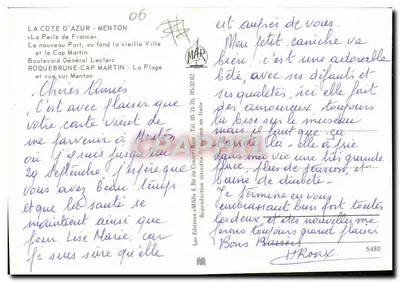 06
LA COTE D'AZUR - MENTON
«La Perle de France»
Le nouveau Port, au fond la vieille Ville
et le Cap Martin
Boulevard Général Leclerc
ROQUEBRUNE-CAP MARTIN - La Plage
et vue sur Menton
MAR
Chères Amies
C'est avec plaisir que
votre carte vient de
me parvenir à Menton
où j'y suis jusqu'au
29 septembre, j'espère que
vous avez beau temps
et que la santé se
maintient ainsi que
pour Lise Marie, car
je suis sûre qu'elle
Les Editions «MAR»
Reproduction interdite en Italie
est auprès de vous.
Mon petit caniche va
bien, c'est une adorable
bête, avec ses défauts et
ses qualités, ici elle fait
des amoureux toujours
la bise sur le museau
mais il faut que ça
la - elle a prise
dans ma vie une très grande
place. plus de tension, et
baisse de diabète.
Je termine en vous
embrassant bien fort toutes
les deux, et des nouvelles me
ferons toujours grand plaisir
Bons Baisers
H Roux
5480